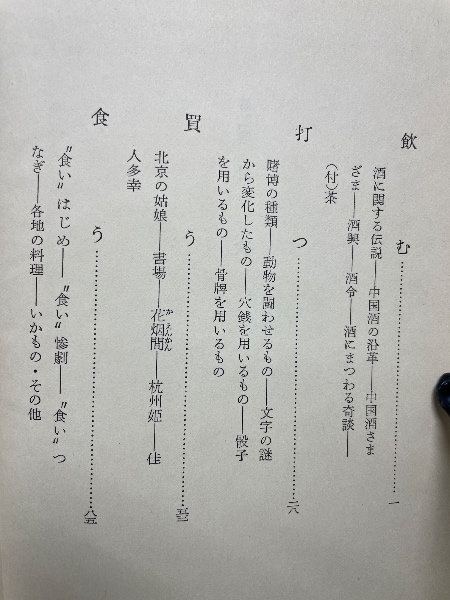 飲む……一
酒に関する伝説――中国酒の沿革――中国酒さま
ざま――酒興――酒令――酒にまつわる奇談――
(付)茶
打つ……二八
賭博の種類――動物を闘わせるもの――文字の謎
から変化したもの――穴銭を用いるもの――骰子
を用いるもの――骨牌を用いるもの
買う……五三
北京の姑娘――書場――花烟間――杭州姫――佳
かえんかん
人多幸
食う……八五
〝食い〟はじめ――〝食い〟惨劇――〝食い〟つ
なぎ――各地の料理――いかもの・その他